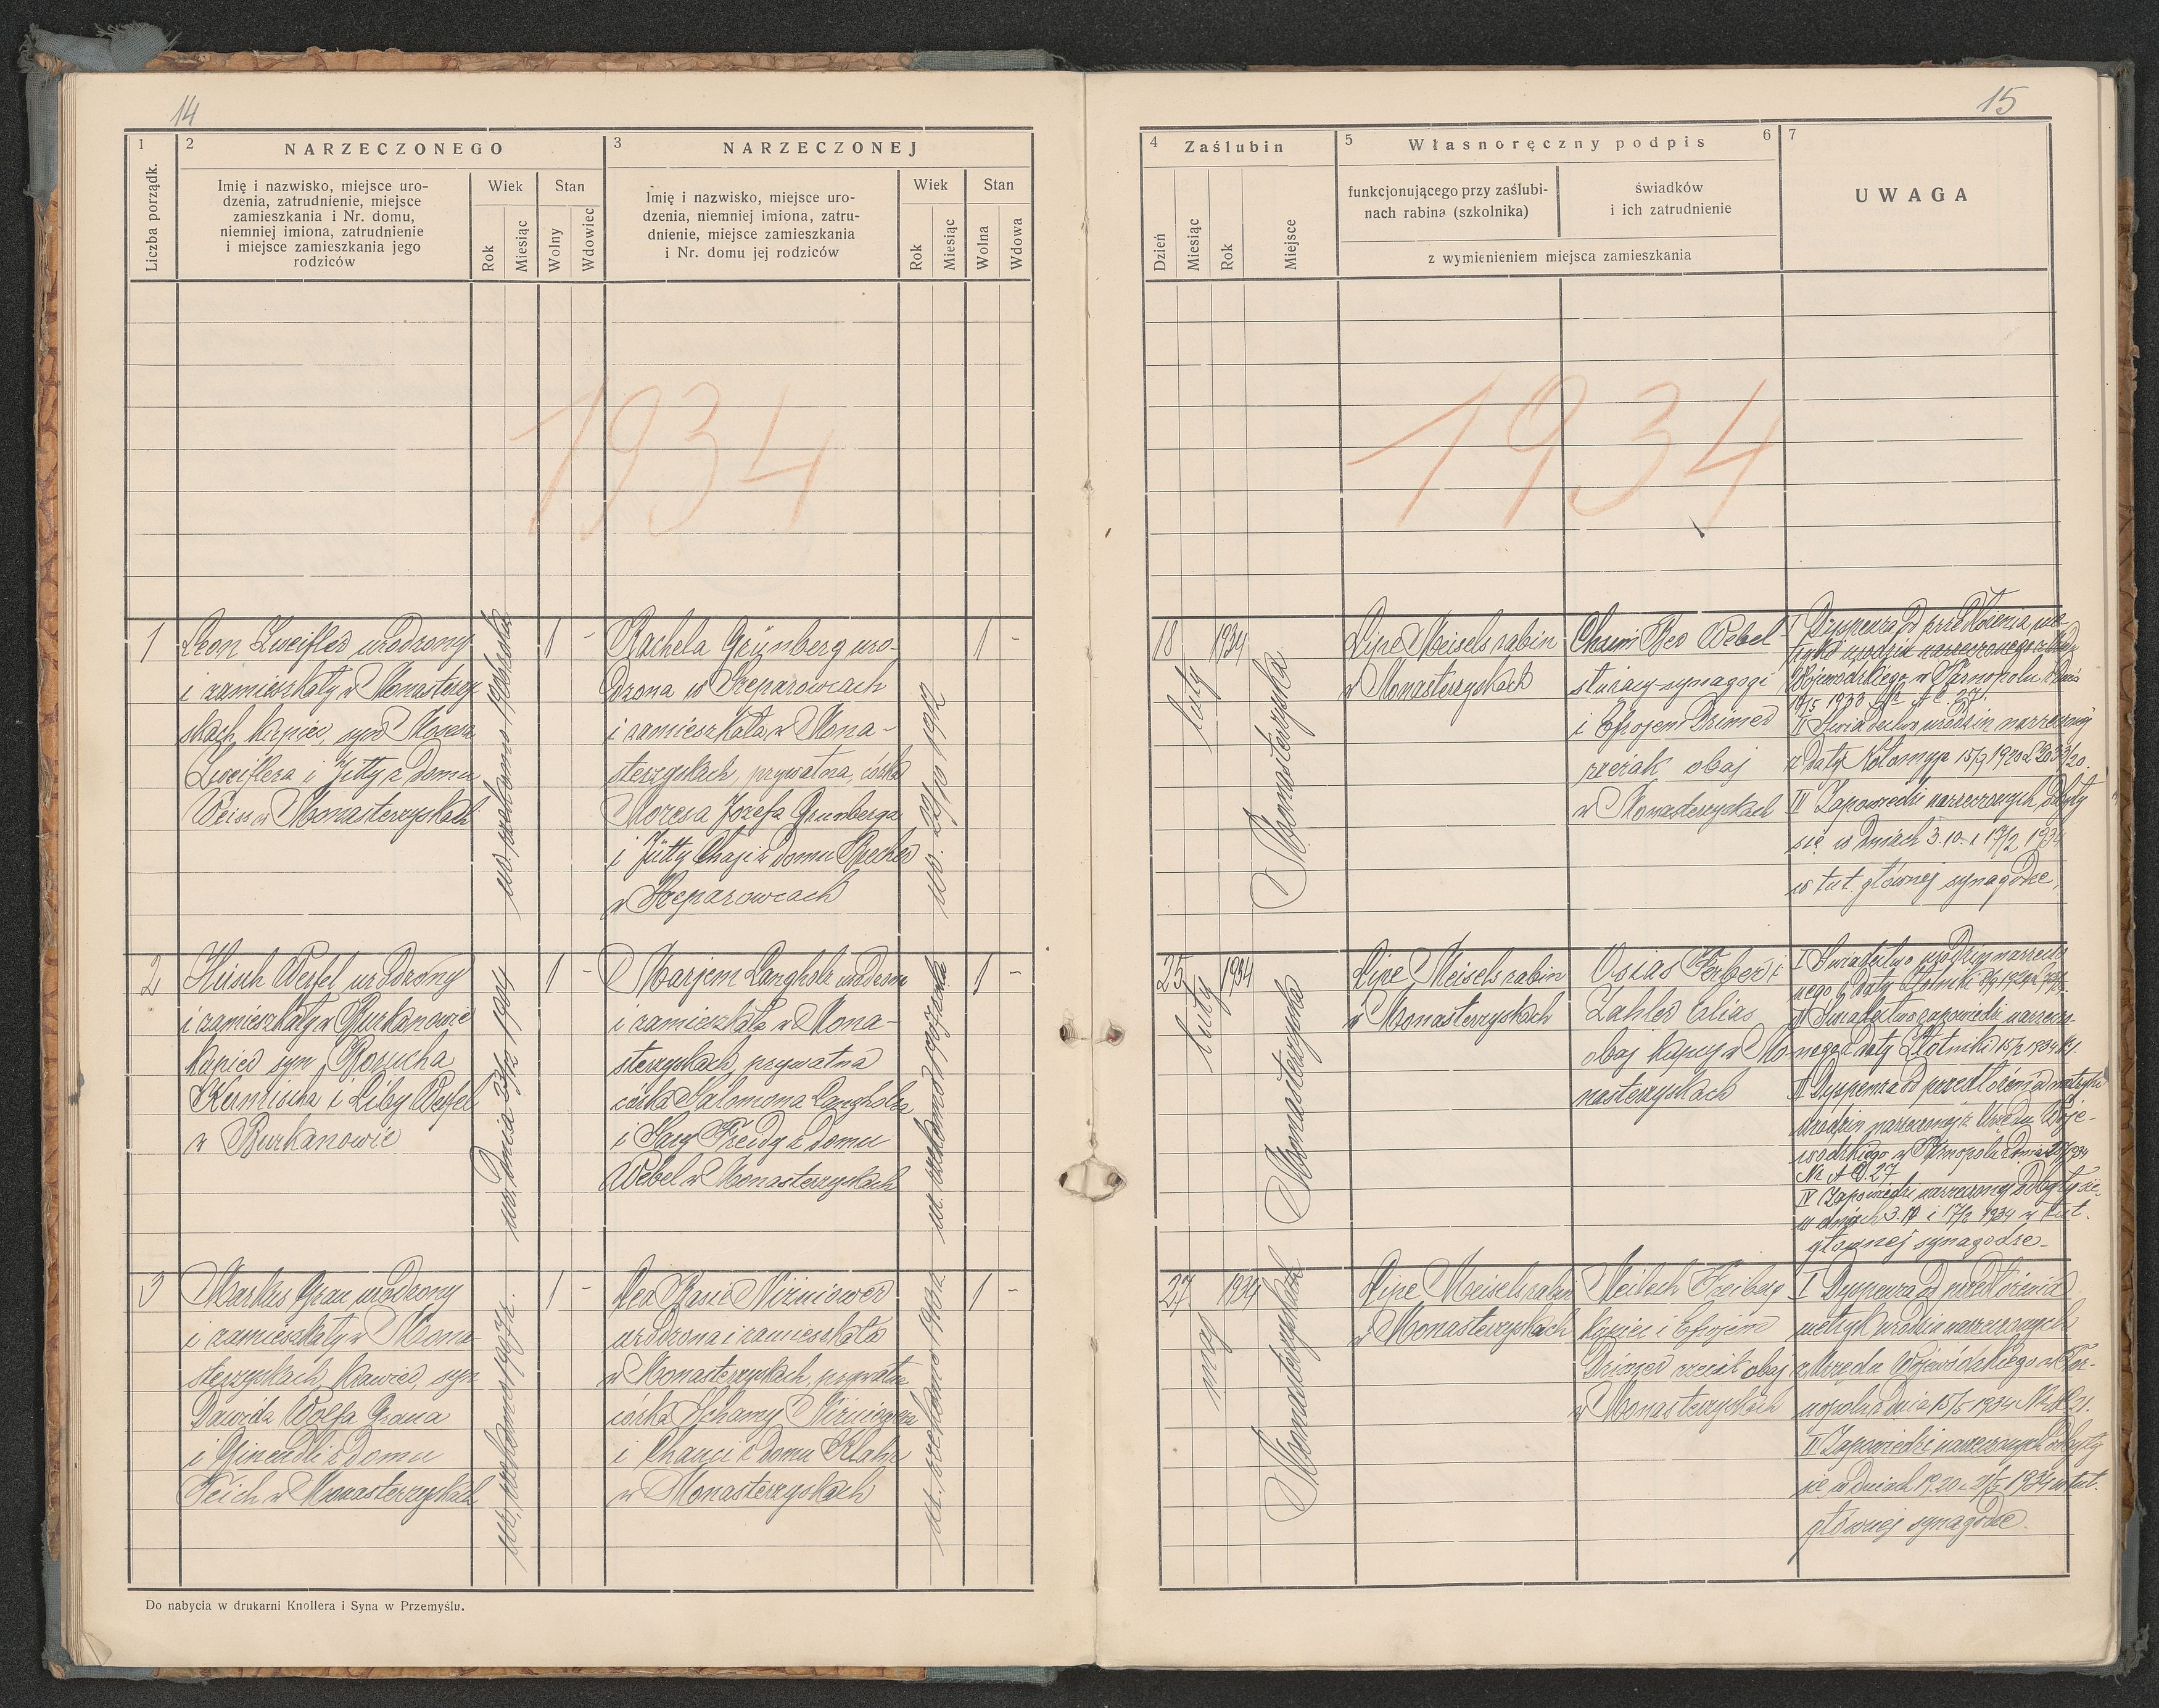 14
1
2
NARZECZONEGO
3
NARZECZONEJ
Liczba porządk.
Imię i nazwisko, miejsce uro-
dzenia, zatrudnienie, miejsce
zamieszkania i Nr. domu,
niemniej imiona, zatrudnienie
i miejsce zamieszkania jego
rodziców
Wiek
Stan
Rok
Miesiąc
Wolny
Wdowiec
Imię i nazwisko, miejsce uro-
dzenia, niemniej imiona, zatru-
dnienie, miejsce zamieszkania
i Nr. domu jej rodziców
Wiek
Stan
Rok
Miesiąc
Wolna
Wdowa
1934
1
Leon Zweifler urodzony
i zamieszkały w Monasterzy-
skach, kupiec, syn Mojżesza
Zweiflera i Jetty z domu
Weiss w Monasterzyskach
1 -
Rachela Grünberg uro-
dzona w Szeparowcach
i zamieszkała w Mona-
sterzyskach, prywatna, córka
Mozesa Józefa Grünberga
i Jütty Chaji z domu Recher
w Szeparowcach
1 -
2
Hirsch Wessel urodzony
i zamieszkały w Burkanowie
kupiec syn Borucha
i Liby Wessel
w Burkanowie
ur. dnia 23/12 1904
1 -
Marjem Langholz urodzona
i zamieszkała w Mona-
sterzyskach, prywatna
córka Salomona Langholza
i Sary Freidy z domu
Webel w Monasterzyskach
1 -
3
Markus Grau urodzony
i zamieszkały w Mona-
sterzyskach, krawiec, syn
Dawida Wolfa Graua
i Ginendli z domu
Teich w Monasterzyskach
1 -
Lea Rosie Niżniower
urodzona i zamieszkała
w Monasterzyskach, prywatna
córka Schamy Niżniowera
i Chanci z domu Klahr
w Monasterzyskach
1 -
Do nabycia w drukarni Knollera i Syna w Przemyślu.
15
4
Zaślubin
5
Własnoręczny podpis
6
7
Dzień
Miesiąc
Rok
Miejsce
funkcjonującego przy zaślubi-
nach rabina (szkolnika)
świadków
i ich zatrudnienie
z wymienieniem miejsca zamieszkania
UWAGA
1934
18
luty
1934
Monasterzyska
Lipe Meisels rabin
w Monasterzyskach
Chaim Ber Webel
stróż synagogi
i Efrojem Drimer
rzezak obaj
w Monasterzyskach
I Dyspenza od przedłożenia me-
tryki urodzin narzeczonego z Urzędu
Wojewódzkiego w Tarnopolu dnia
II Świadectwo urodzin narzeczonej
z daty Kołomyja 15/9 1920
IV Zapowiedzi narzeczonych odbyły
się w dniach 3. 10. i 17/2 1934
w tut. głównej synagodze.
25
luty
1934
Monasterzyska
Lipe Meisels rabin
w Monasterzyskach
Osias Ferber i
Zahler Elias
obaj kupcy w Mo-
nasterzyskach
I Świadectwo urodzin narzeczo-
nego z daty Złotniki
II Świadectwo zapowiedzi narzeczo-
nego z daty Złotniki 15/2 1934
III Dyspenza od przedłożenia metryki
urodzin narzeczonej z Urzędu Woje-
wódzkiego w Tarnopolu dnia
IV Zapowiedzi narzeczonej odbyły się
w dniach 3. 10 i 17/2 1934 w tut.
głównej synagodze.
27
maj
1934
Monasterzyskach
Lipe Meisels rabin
w Monasterzyskach
Meilech Freiberg
kupiec i Efrojem
Drimer rzezak obaj
w Monasterzyskach
I Dyspenza od przedłożenia
metryk urodzin narzeczonych
z Urzędu Wojewódzkiego w Tar-
nopolu z dnia 15/5 1934
II Zapowiedzi narzeczonych odbyły
się w dniach 19. 20. 1934 w tut.
głównej synagodze.